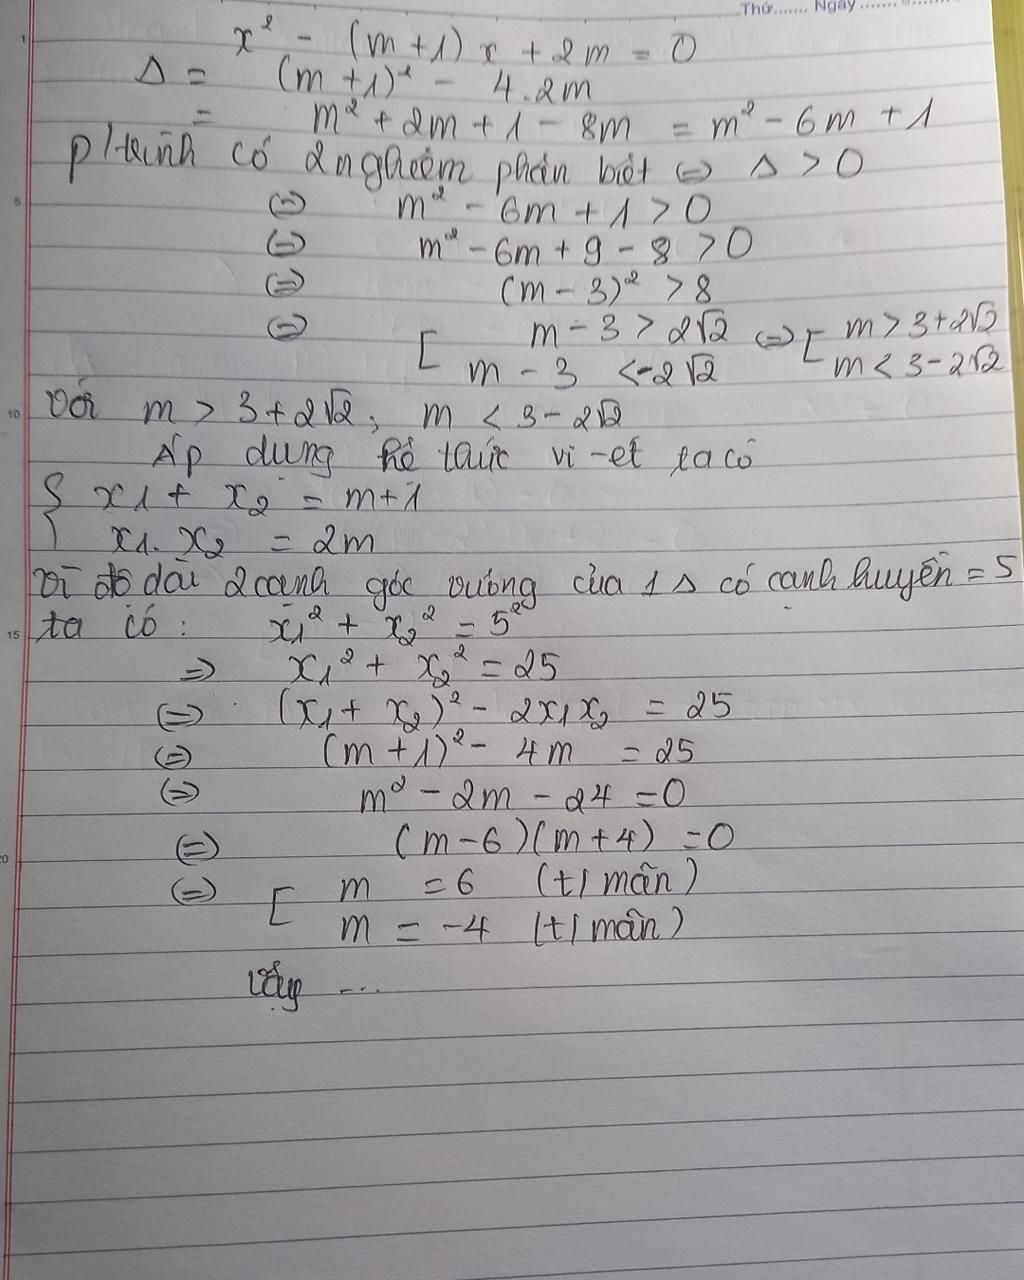 Thứ....... Ngày .......
x² - (m+1) x + 2m = 0
Δ = (m+1)² - 4.2m
= m² + 2m + 1 - 8m = m² - 6m + 1
p/trình có 2 nghiệm phân biệt ⇔ Δ > 0
⇔ m² - 6m + 1 > 0
⇔ m² - 6m + 9 - 8 > 0
⇔ (m - 3)² > 8
⇔ [ m - 3 > 2√2 ⇔ [ m > 3+2√2
m - 3 < -2√2 m < 3-2√2
10 Với m > 3+2√2; m < 3-2√2
Áp dụng hệ thức vi-ét ta có
{ x1 + x2 = m+1
x1. x2 = 2m
Vì độ dài 2 cạnh góc vuông của 1 Δ có cạnh huyền = 5
15 ta có: x1² + x2² = 5²
⇒ x1² + x2² = 25
⇔ (x1 + x2)² - 2x1x2 = 25
⇔ (m+1)² - 4m = 25
⇔ m² - 2m - 24 = 0
⇔ (m-6)(m+4) = 0
⇔ [ m = 6 (t/mãn)
m = -4 (t/mãn)
Vậy ...